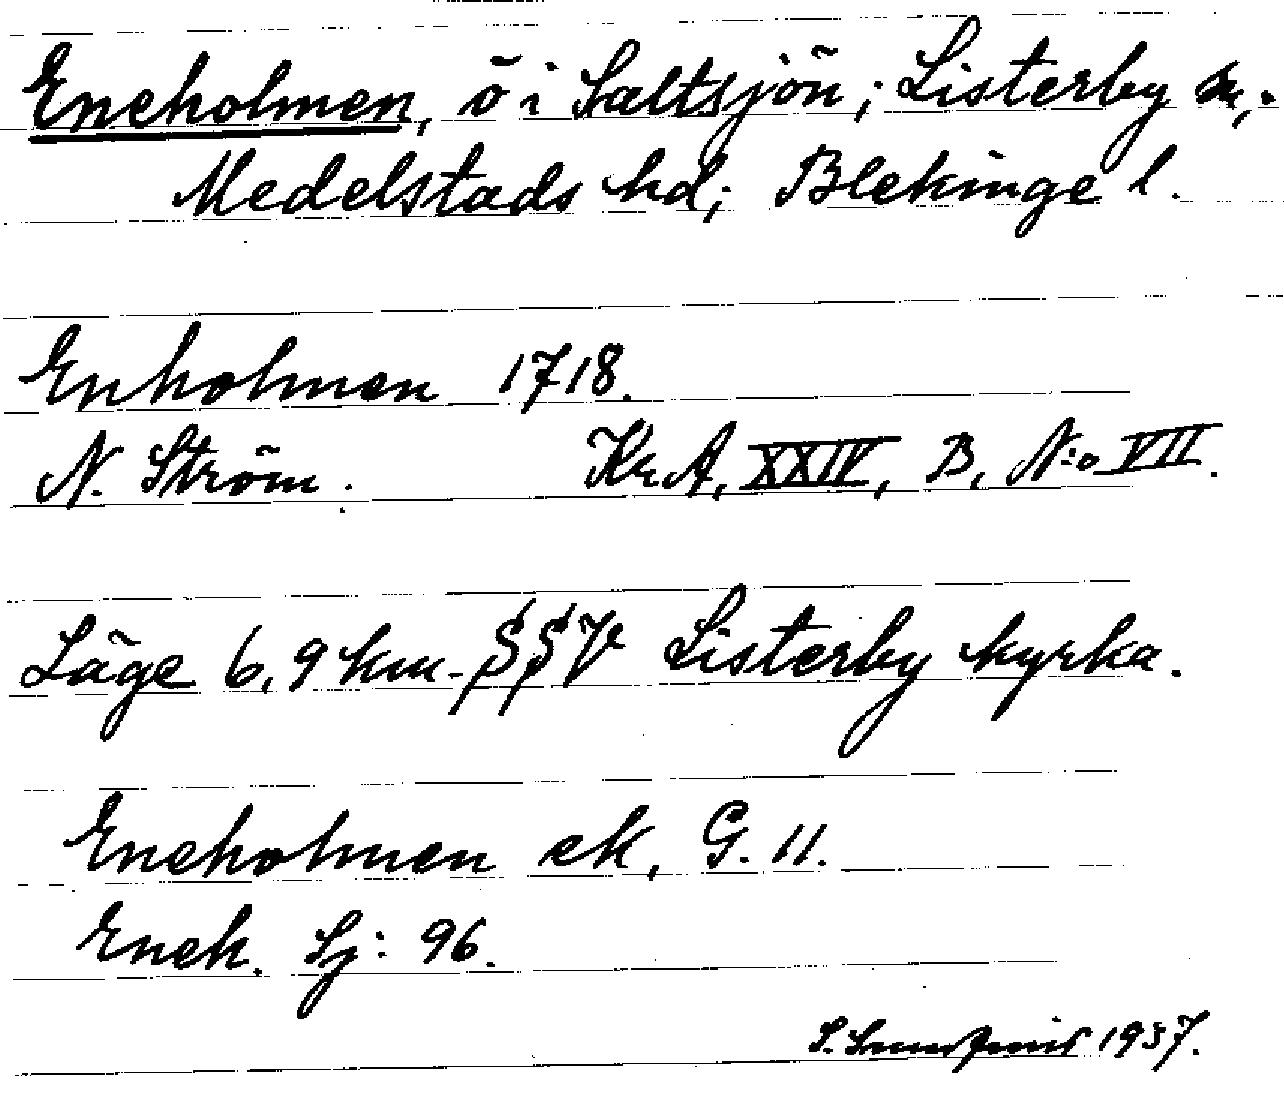 Eneholmen, ö i Saltsjön; Listerby sn,.
Medelstads hd; Blekinge l.
Enholmen 1718.
N. Ström. Kr.A, XXIV, B, N:o VII.
Läge 6,9 km. SSV Listerby kyrka.
Eneholmen ek, G. 11.
Enek. Sj: 96.
S. 1937.